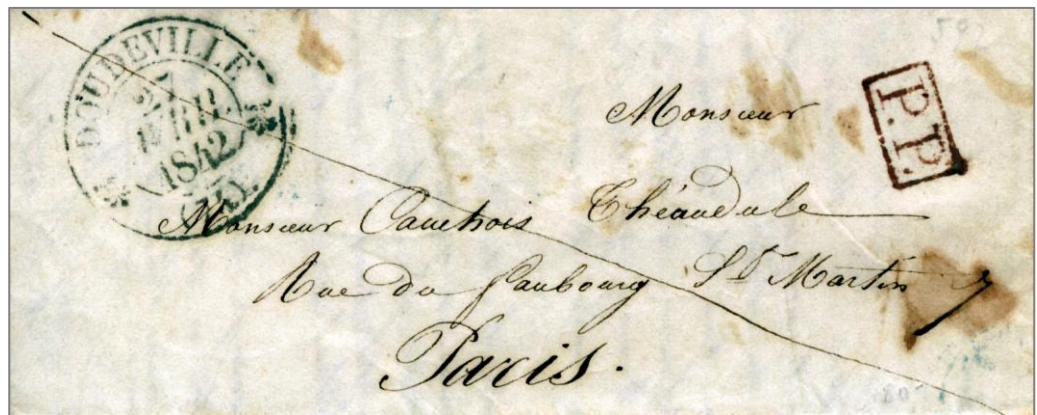 DOUDEVILLE
1842
P.P.
Monsieur
Monsieur Cauchois Théodule
Rue du faubourg St Martin 7
Paris.